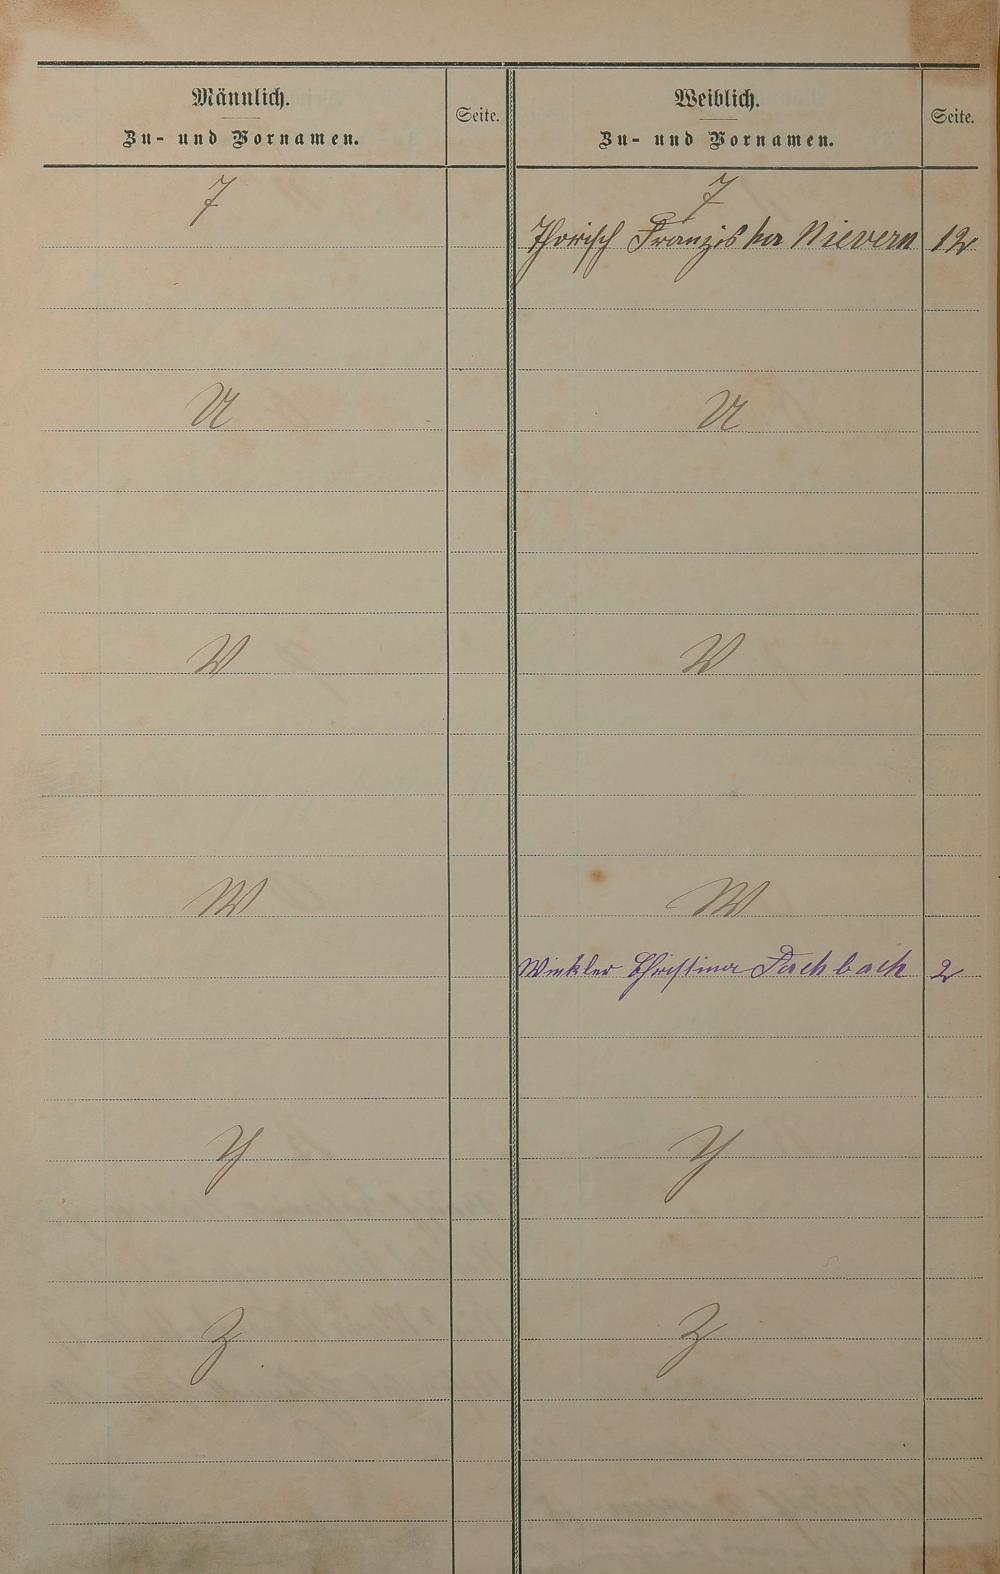 Männlich.
Zu- und Vornamen.
Seite.
Weiblich.
Zu- und Vornamen.
Seite.
T
T
Thorisch Franziska Nievern 12
U
U
V
V
W
W
Winkler Christina Fachbach 2
Y
Y
Z
Z